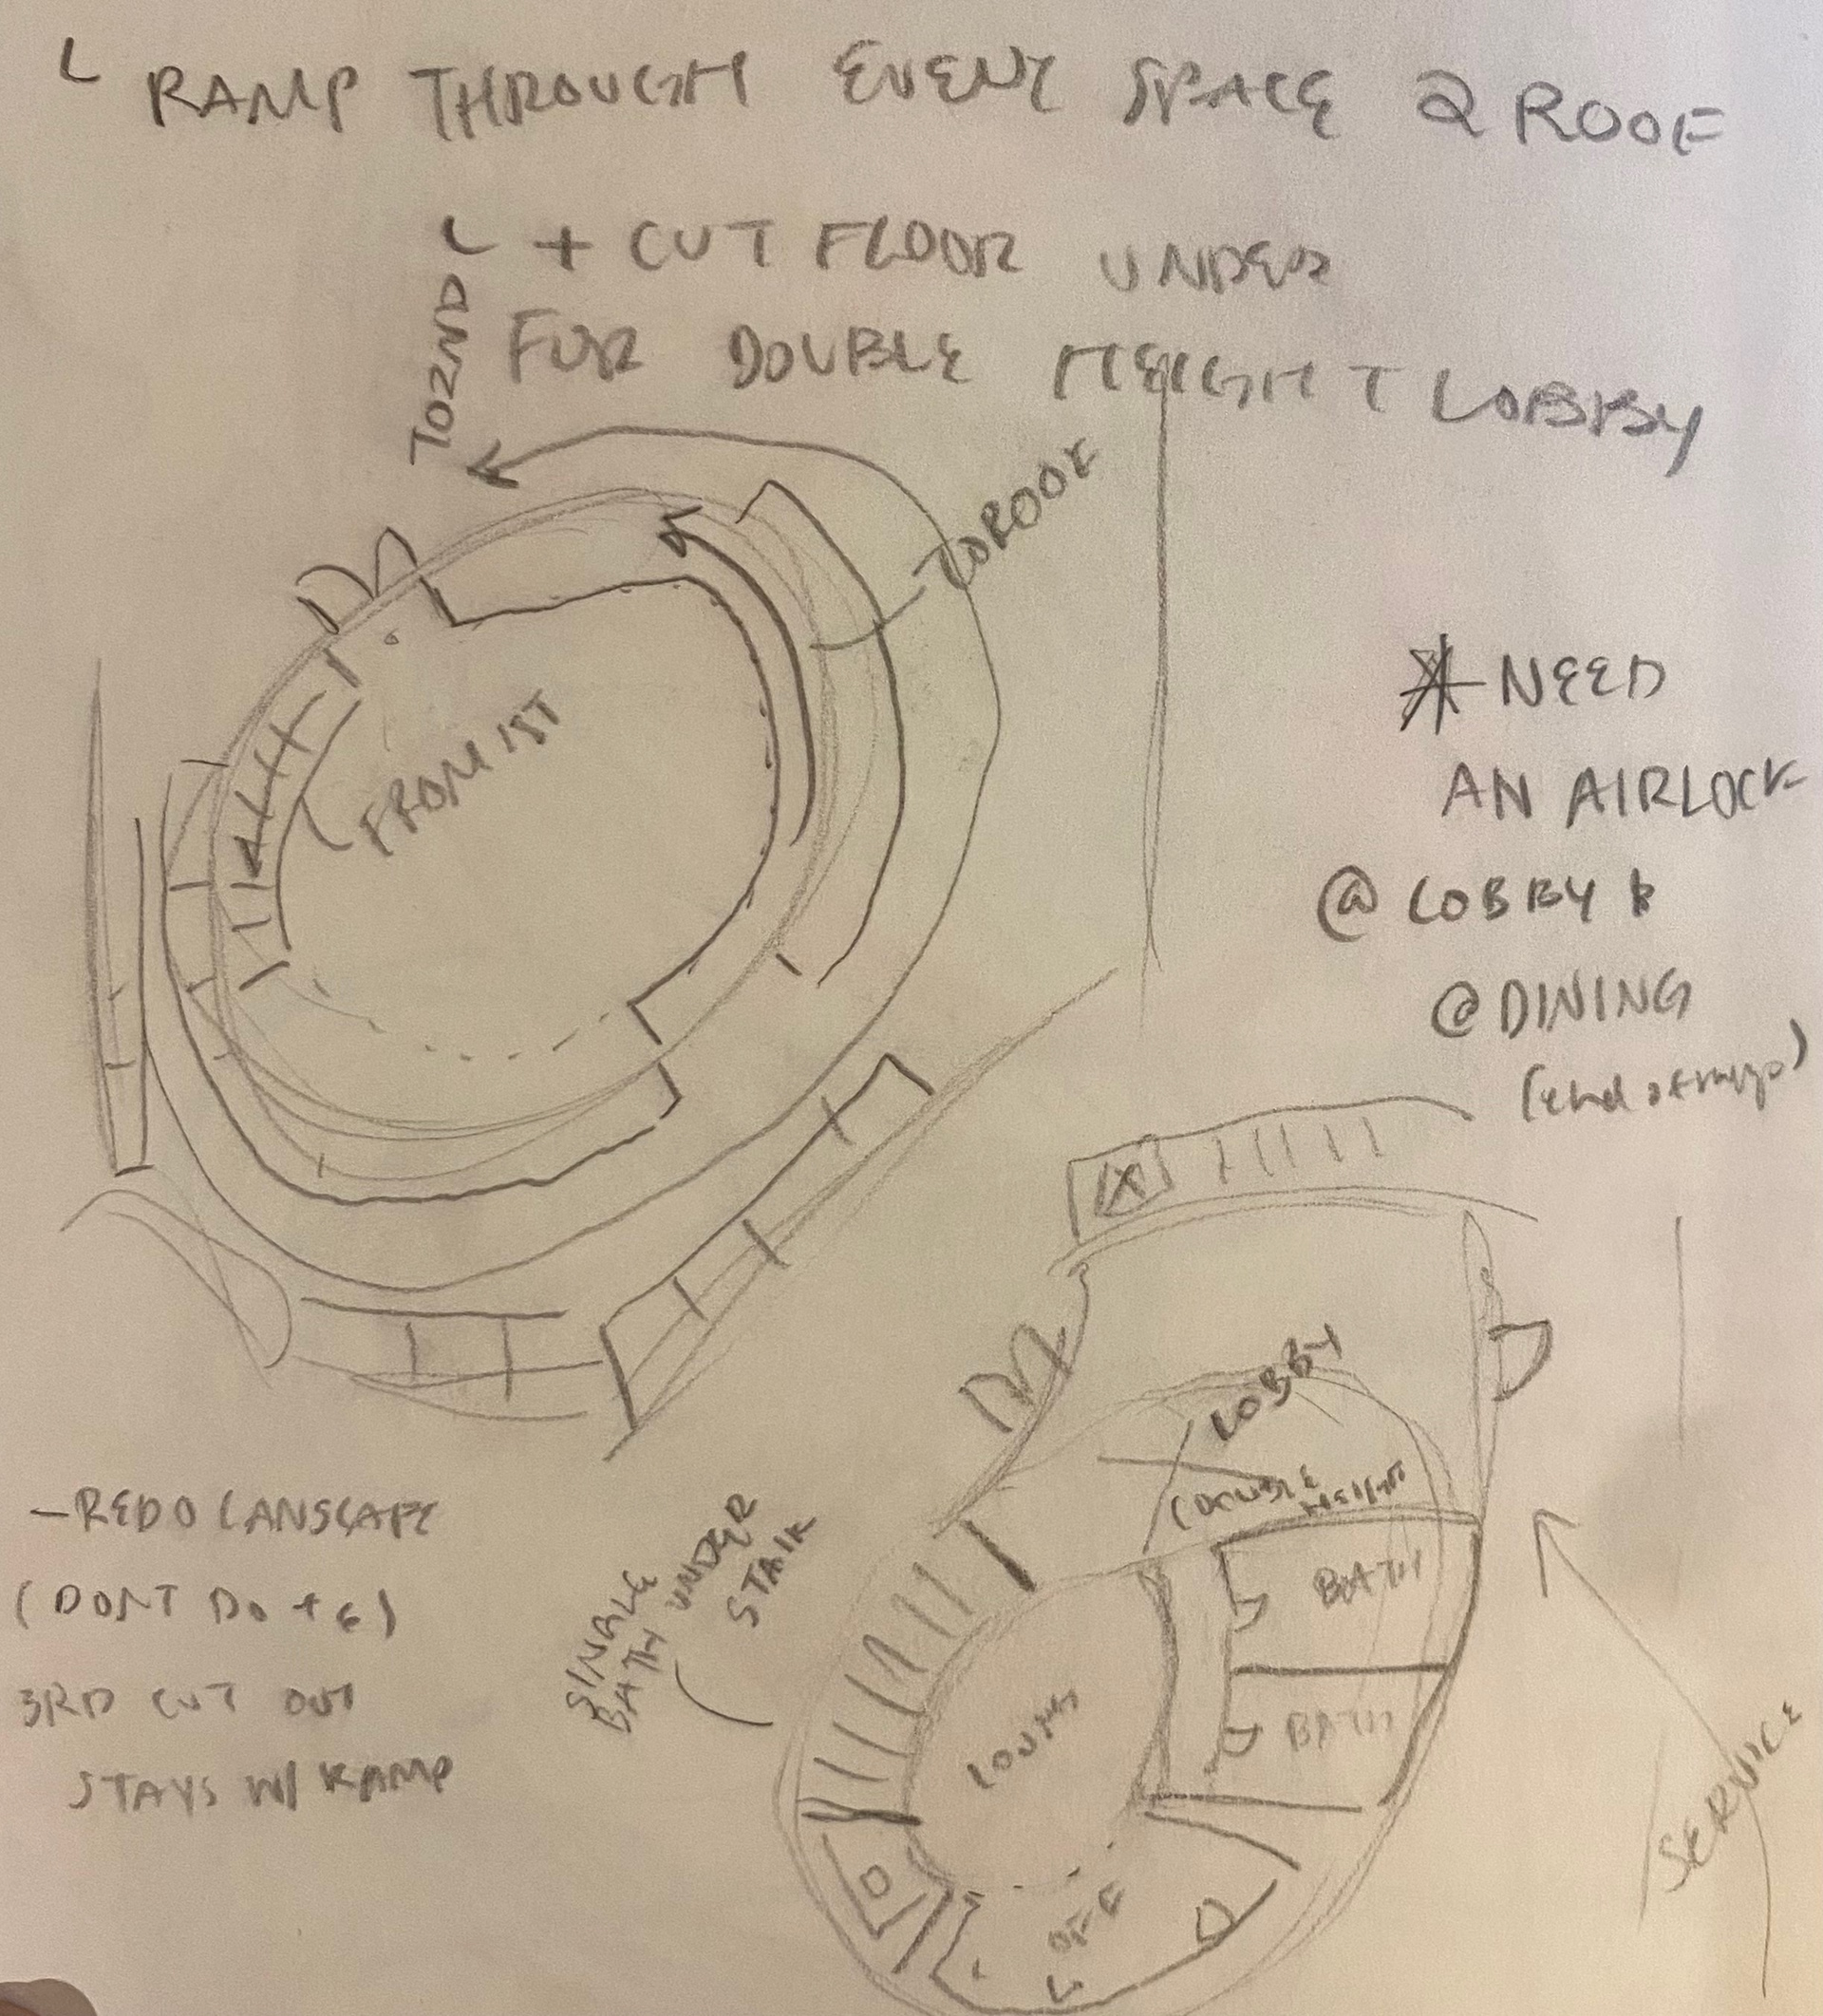 RAMP THROUGH EVENT SPACE 2 ROOF
+ CUT FLOOR UNDER
FOR DOUBLE HEIGHT LOBBY
TO 2ND
TO ROOF
FROM 1ST
* NEED
AN AIRLOCK
@ LOBBY &
@ DINING
(end of ramp)
LOBBY
(DOUBLE HEIGHT
BATH
BATH
SINGLE
BATH UNDER
STAIR
LOUNG
OFF
SERVICE
- REDO LANSCAPE
(DONT DO + E)
3RD CUT OUT
STAYS W/ RAMP